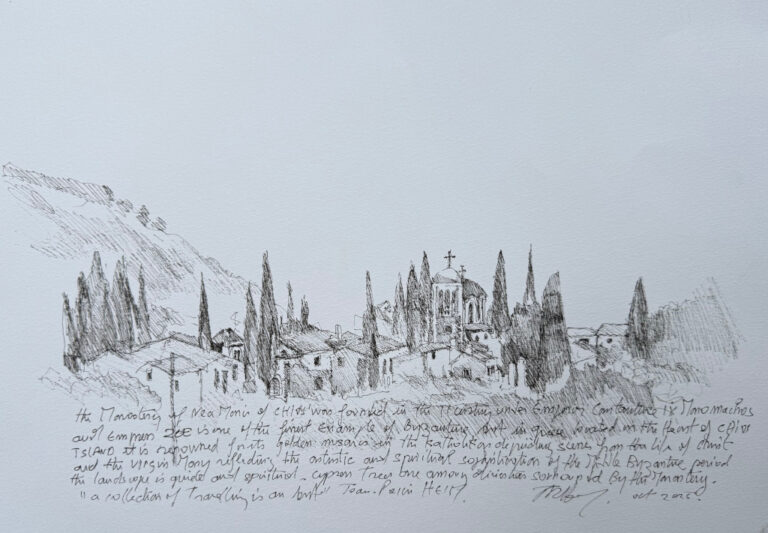 the Monastery of Nea Moni of CHIOS was founded in the 11 century under Emperor Constantine IX Monomachos
and Empress ZOE is one of the finest Example of Byzantine Art in Greece located in the Heart of CHIOS
ISLAND it is renowned for its golden mosaics in the Katholikon depicting scene from the life of Christ
and the Virgin Mary reflecting the artistic and spiritual sophistication of the Middle Byzantine period
the landscape is quiet and spiritual. cypress Trees are among surrounded By the Monastery.
"a collection of Travelling is an Art" Jean. oct 2025